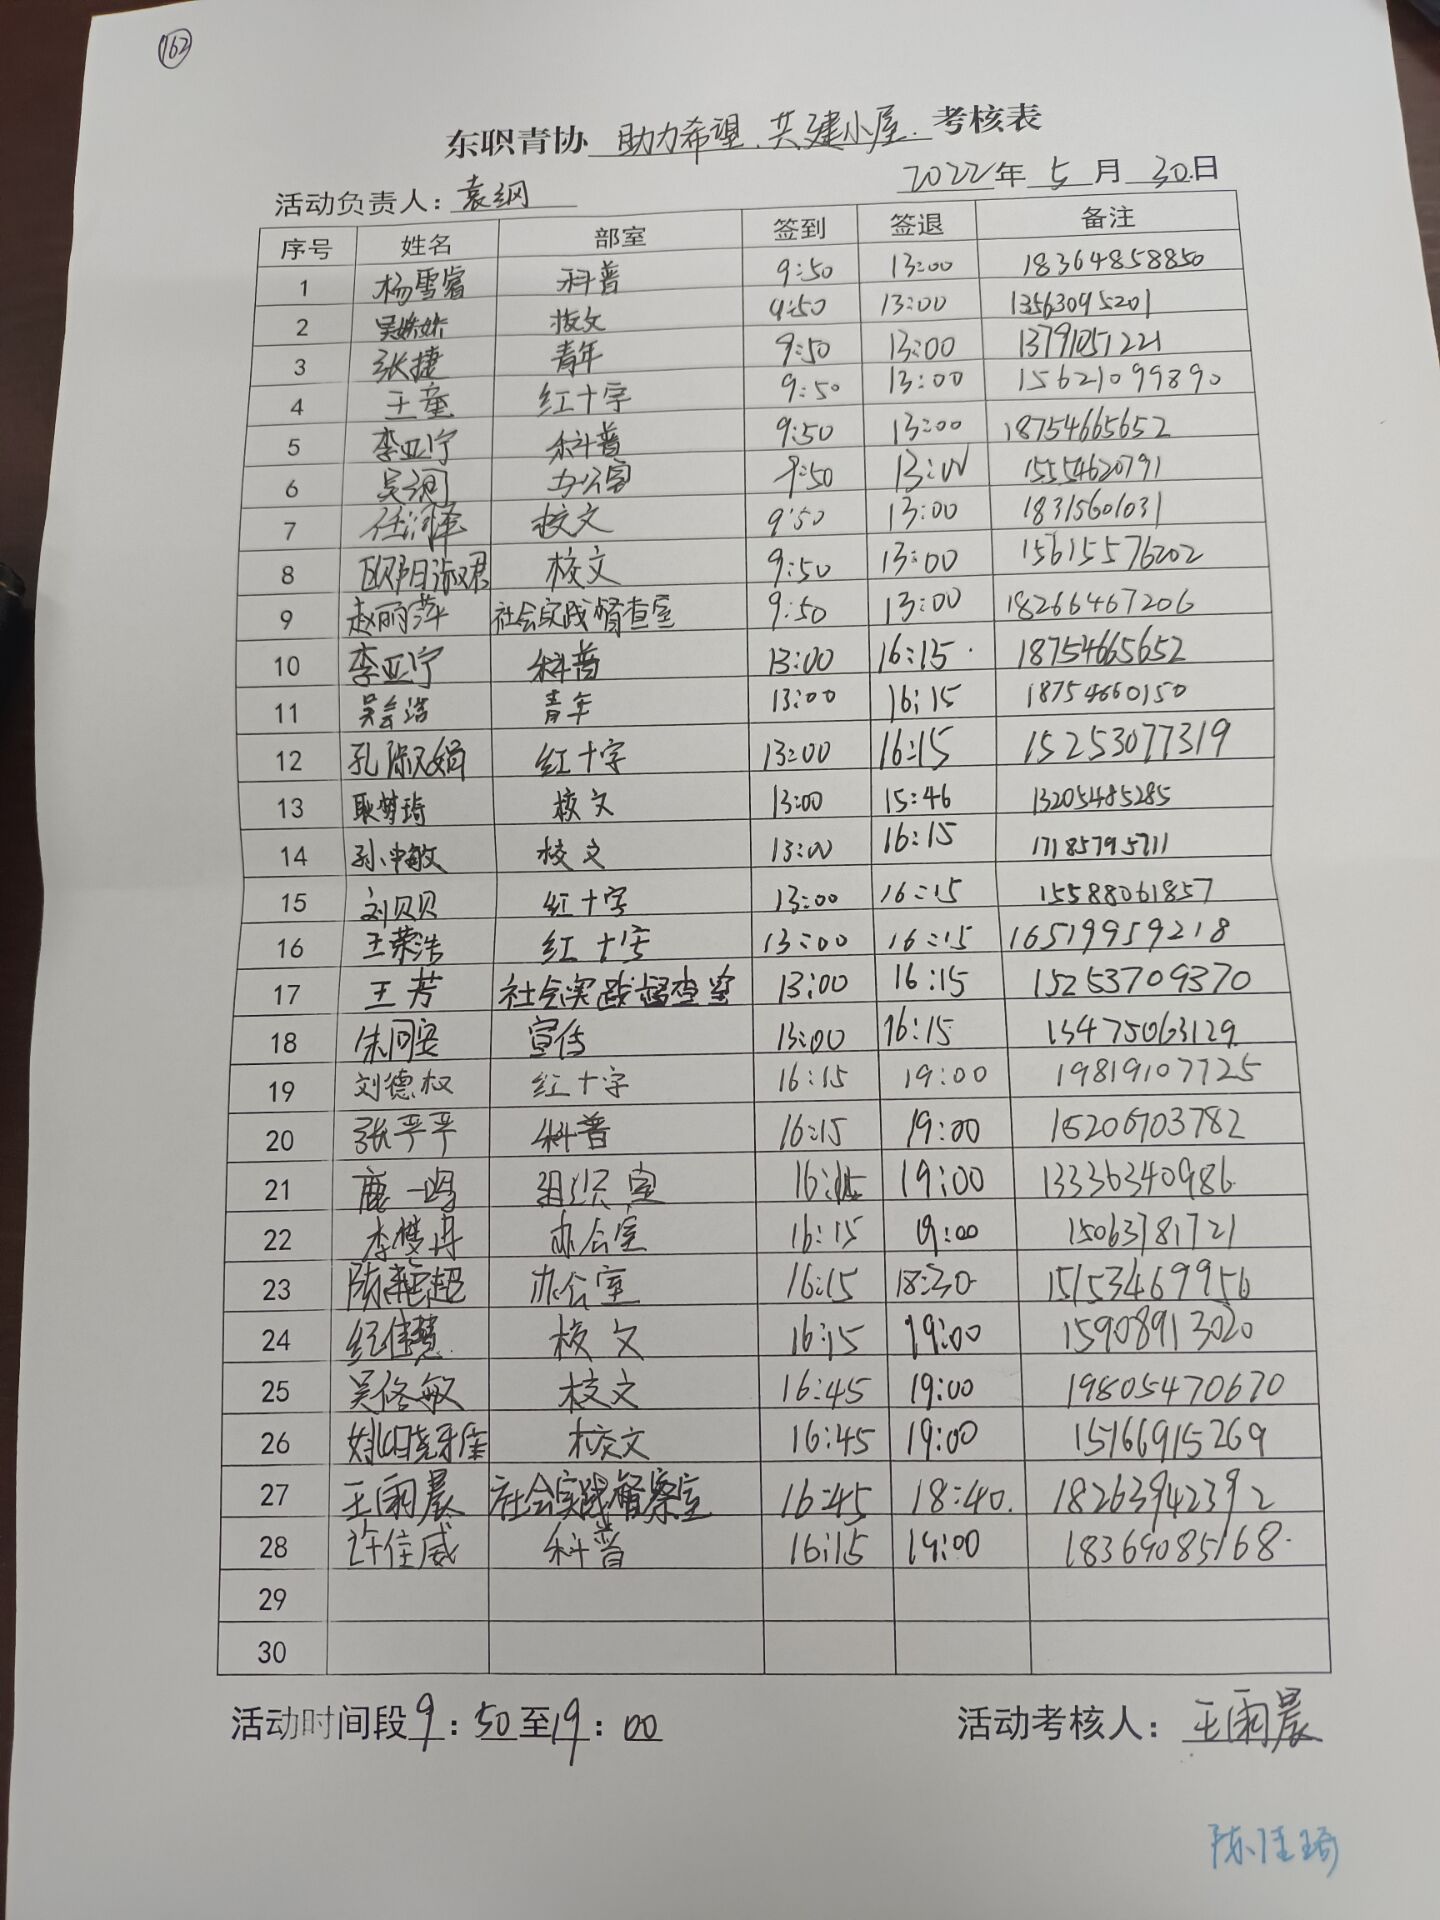 162
东职青协 助力希望、共建小屋 考核表
活动负责人：袁纲 2022年 5 月 30日
序号 姓名 部室 签到 签退 备注
1 杨雪睿 科普 9:50 13:00 18364858850
2 吴姝姝 校文 9:50 13:00 13563095201
3 张捷 青年 9:50 13:00 13791051221
4 王童 红十字 9:50 13:00 15621099890
5 李亚宁 科普 9:50 13:00 18754665652
6 吴润 办公室 9:50 13:00 15554620791
7 任泽 校文 9:50 13:00 18315601031
8 欧阳淑君 校文 9:50 13:00 15615576202
9 赵丽萍 社会实践督查室 9:50 13:00 18266467206
10 李亚宁 科普 13:00 16:15 18754665652
11 吴会浩 青年 13:00 16:15 18754660150
12 孔淑娟 红十字 13:00 16:15 15253077319
13 耿梦琦 校文 13:00 15:46 13205485285
14 孙中敏 校文 13:00 16:15 17185795711
15 刘贝贝 红十字 13:00 16:15 15588061857
16 王荣浩 红十字 13:00 16:15 16519959218
17 王芳 社会实践督查室 13:00 16:15 15253709370
18 朱同安 宣传 13:00 16:15 13475063129
19 刘德权 红十字 16:15 19:00 19819107725
20 张严严 科普 16:15 19:00 15206703782
21 鹿一鸣 组织室 16:15 19:00 13336340986
22 李梦冉 办公室 16:15 19:00 15063781721
23 陈艳超 办公室 16:15 18:30 15153469956
24 纪佳慧 校文 16:15 19:00 15908913020
25 吴修敏 校文 16:45 19:00 19805470670
26 校文 16:45 19:00 15166915269
27 王雨晨 社会实践督察室 16:45 18:40 18263942392
28 许佳威 科普 16:15 19:00 18369085168
29
30
活动时间段 9：50至19：00 活动考核人：王雨晨
陈佳琦